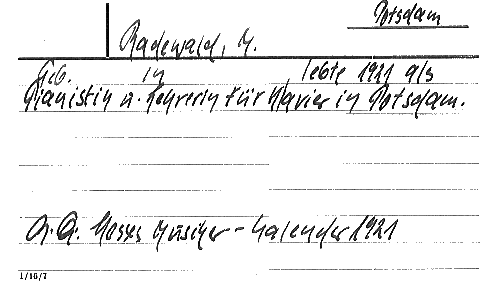 Potsdam
Radewald, M.
Geb. in , lebte 1921 als
Pianistin u. Lehrerin für Klavier in Potsdam.
Hesses Musiker-Kalender 1921
1/16/7